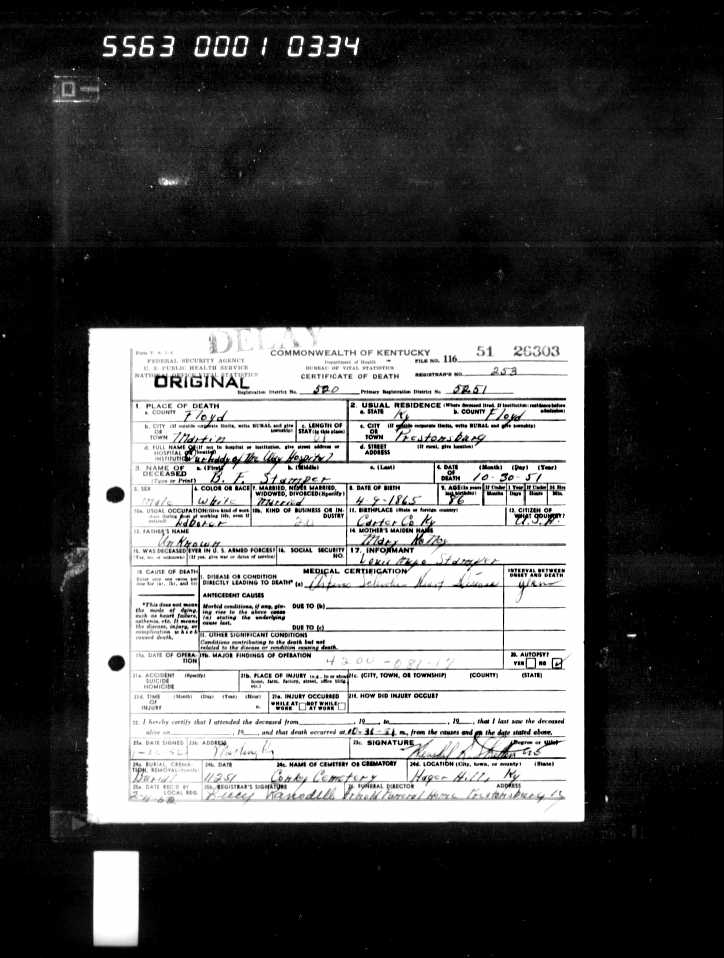 5563 0001 0334
DELAY
COMMONWEALTH OF KENTUCKY
FEDERAL SECURITY AGENCY
U. S. PUBLIC HEALTH SERVICE
NATIONAL OFFICE VITAL STATISTICS
Department of Health
BUREAU OF VITAL STATISTICS
CERTIFICATE OF DEATH
FILE NO. 116 51 26303
REGISTRAR'S NO. 253
ORIGINAL
Registration District No. 520 Primary Registration District No. 5251
1. PLACE OF DEATH
a. COUNTY Floyd
2. USUAL RESIDENCE (Where deceased lived. If institution: residence before admission)
a. STATE Ky b. COUNTY Floyd
b. CITY (If outside corporate limits, write RURAL and give township) OR TOWN Martin
c. LENGTH OF STAY (in this place)
c. CITY (If outside corporate limits, write RURAL and give township) OR TOWN Prestonsburg
d. FULL NAME OF (If not in hospital or institution, give street address or location) HOSPITAL OR INSTITUTION Our Lady of The Way Hospital
d. STREET ADDRESS (If rural, give location)
3. NAME OF DECEASED (Type or Print) a. (First) b. (Middle) c. (Last) B. F. Stamper
4. DATE OF DEATH (Month) (Day) (Year) 10-30-51
5. SEX Male
6. COLOR OR RACE White
7. MARRIED, NEVER MARRIED, WIDOWED, DIVORCED (Specify) Married
8. DATE OF BIRTH 4-9-1865
9. AGE (In years last birthday) 86 If Under 1 Year Months Days If Under 24 Hrs Hours Min.
10a. USUAL OCCUPATION (Give kind of work done during most of working life, even if retired) Laborer
10b. KIND OF BUSINESS OR INDUSTRY
11. BIRTHPLACE (State or foreign country) Carter Co Ky
12. CITIZEN OF WHAT COUNTRY? U.S.A.
13. FATHER'S NAME Unknown
14. MOTHER'S MAIDEN NAME Mary
15. WAS DECEASED EVER IN U. S. ARMED FORCES? (Yes, no, or unknown) (If yes, give war or dates of service)
16. SOCIAL SECURITY NO.
17. INFORMANT Stamper
18. CAUSE OF DEATH Enter only one cause per line for (a), (b), and (c)
MEDICAL CERTIFICATION
INTERVAL BETWEEN ONSET AND DEATH
I. DISEASE OR CONDITION DIRECTLY LEADING TO DEATH* (a) Heart Disease
*This does not mean the mode of dying, such as heart failure, asthenia, etc. It means the disease, injury, or complication which caused death.
ANTECEDENT CAUSES
Morbid conditions, if any, giving rise to the above cause (a) stating the underlying cause last.
DUE TO (b)
DUE TO (c)
II. OTHER SIGNIFICANT CONDITIONS
Conditions contributing to the death but not related to the disease or condition causing death.
19a. DATE OF OPERATION
19b. MAJOR FINDINGS OF OPERATION
20. AUTOPSY? YES NO
21a. ACCIDENT SUICIDE HOMICIDE (Specify)
21b. PLACE OF INJURY (e.g., in or about home, farm, factory, street, office bldg., etc.)
21c. (CITY, TOWN, OR TOWNSHIP) (COUNTY) (STATE)
21d. TIME OF INJURY (Month) (Day) (Year) (Hour) m.
21e. INJURY OCCURRED WHILE AT WORK NOT WHILE AT WORK
21f. HOW DID INJURY OCCUR?
22. I hereby certify that I attended the deceased from , 19 , to , 19 , that I last saw the deceased
alive on , 19 , and that death occurred at m., from the causes and on the date stated above.
23a. DATE SIGNED
23b. ADDRESS
23c. SIGNATURE (Degree or title)
24a. BURIAL, CREMATION, REMOVAL (Specify) Burial
24b. DATE 11251
24c. NAME OF CEMETERY OR CREMATORY Conky Cemetery
24d. LOCATION (City, town, or county) (State) Hager Hill Ky
25a. DATE REC'D BY LOCAL REG.
25b. REGISTRAR'S SIGNATURE
26. FUNERAL DIRECTOR ADDRESS Arnold Funeral Home Prestonsburg Ky